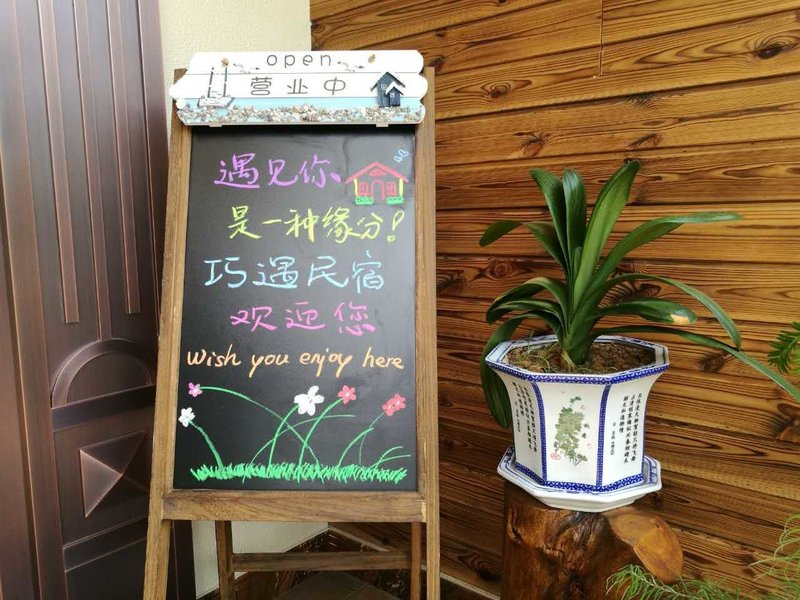 open
营业中
遇见你
是一种缘分!
巧遇民宿
欢迎您
Wish you enjoy here